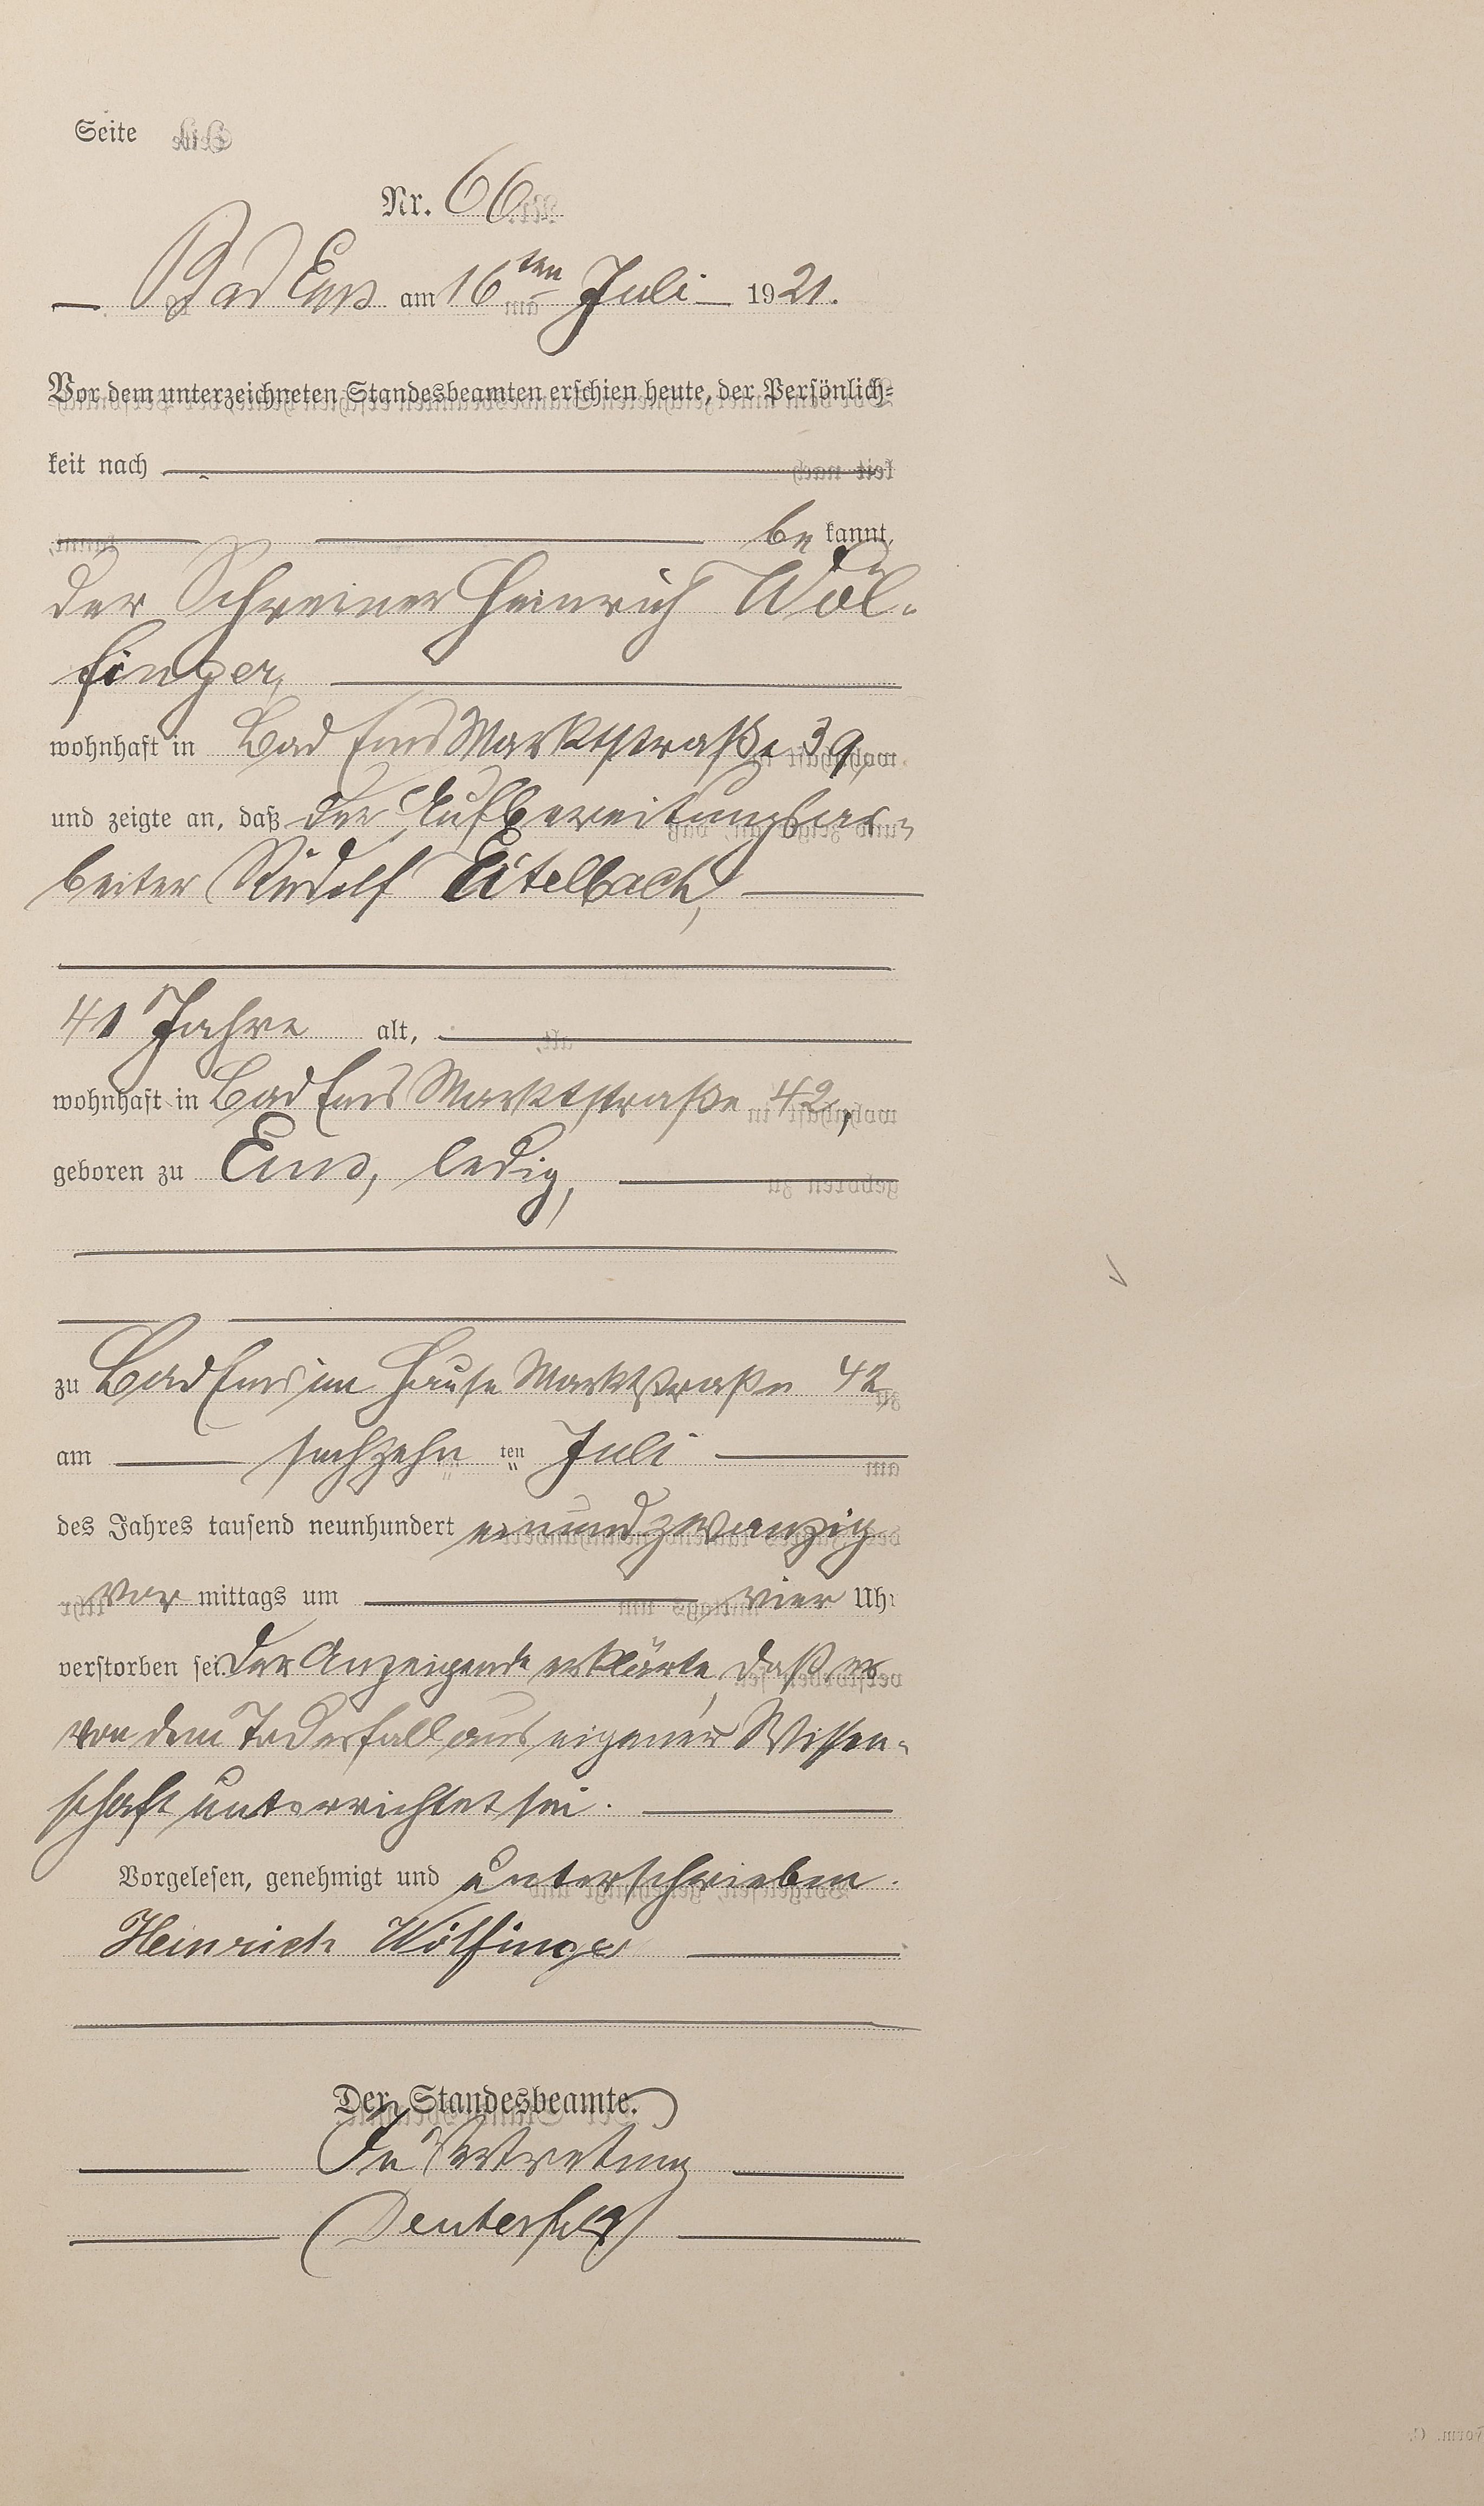 Seite
Nr. 66
Bad Ems am 16ten Juli 1921.
Vor dem unterzeichneten Standesbeamten erschien heute, der Persönlich-
keit nach
be kannt,
der Schreiner Heinrich Wöl-
finger,
wohnhaft in Bad Ems Marktstraße 39,
und zeigte an, daß der Aufbereitungsar-
beiter Rudolf Eitelbach,
41 Jahre alt,
wohnhaft in Bad Ems Marktstraße 42,
geboren zu Ems, ledig,
zu Bad Ems im Hause Marktstraße 42
am sechzehn ten Juli
des Jahres tausend neunhundert einundzwanzig
vor mittags um vier Uhr
verstorben sei. Der Anzeigende erklärte, daß er
von dem Todesfall aus eigener Wissen-
schaft unterrichtet sei.
Vorgelesen, genehmigt und unterschrieben.
Heinrich Wölfinger
Der Standesbeamte.
In Vertretung